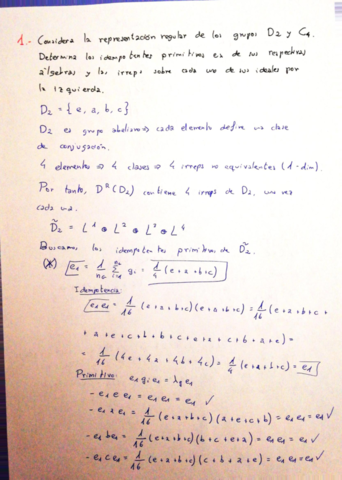 1.- Considera la representación regular de los grupos D2 y C4.
Determina los idempotentes primitivos es de sus respectivas
álgebras y los irreps sobre cada uno de sus ideales por
la izquierda.
D2 = { e, a, b, c }
D2 es grupo abeliano ⇒ cada elemento define una clase
de conjugación.
4 elementos ⇒ 4 clases ⇒ 4 irreps no equivalentes (1-dim)
Por tanto, D^R(D2) contiene 4 irreps de D2, una vez
cada una.
D̃2 = L^1 ⊕ L^2 ⊕ L^3 ⊕ L^4
Buscamos los idempotentes primitivos de D̃2.
(*) e1 = 1/nG Σ gi = 1/4 (e+a+b+c)
Idempotencia:
e1e1 = 1/16 (e+a+b+c)(e+a+b+c) = 1/16 (e+a+b+c+
+a+e+c+b+b+c+e+a+c+b+a+e) =
= 1/16 (4e+4a+4b+4c) = 1/4 (e+a+b+c) = e1
Primitivo: e1 gi e1 = λg e1
- e1 e e1 = e1e1 = e1 ✓
- e1 a e1 = 1/16 (e+a+b+c)(a+e+c+b) = e1e1 = e1 ✓
- e1 b e1 = 1/16 (e+a+b+c)(b+c+e+a) = e1e1 = e1 ✓
- e1 c e1 = 1/16 (e+a+b+c)(c+b+a+e) = e1e1 = e1 ✓